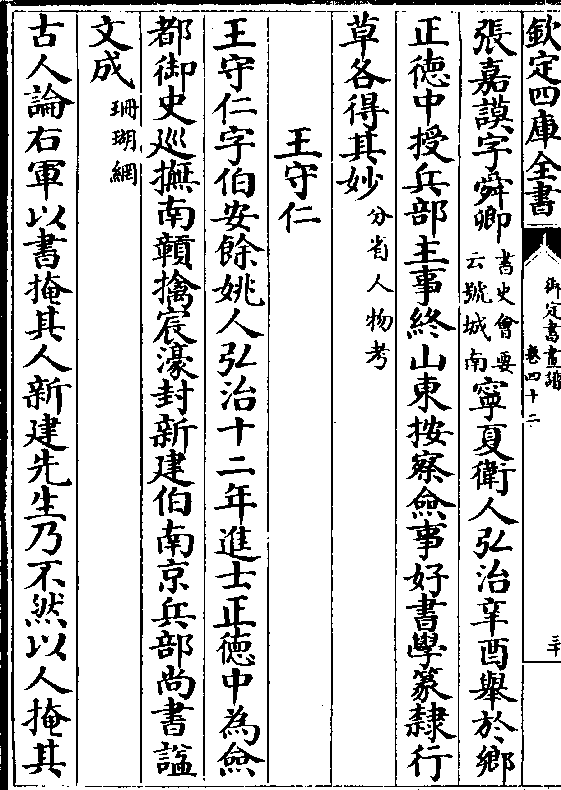 欽定四庫全書
御定書畫譜
卷四十二
三十
張嘉謨字舜卿書史會要云號城南寧夏衛人弘治辛酉舉於鄉
正德中授兵部主事終山東按察僉事好書學篆隸行
草各得其妙分省人物考
王守仁
王守仁字伯安餘姚人弘治十二年進士正德中為僉
都御史巡撫南贑擒宸濠封新建伯南京兵部尚書諡
文成珊瑚網
古人論右軍以書掩其人新建先生乃不然以人掩其